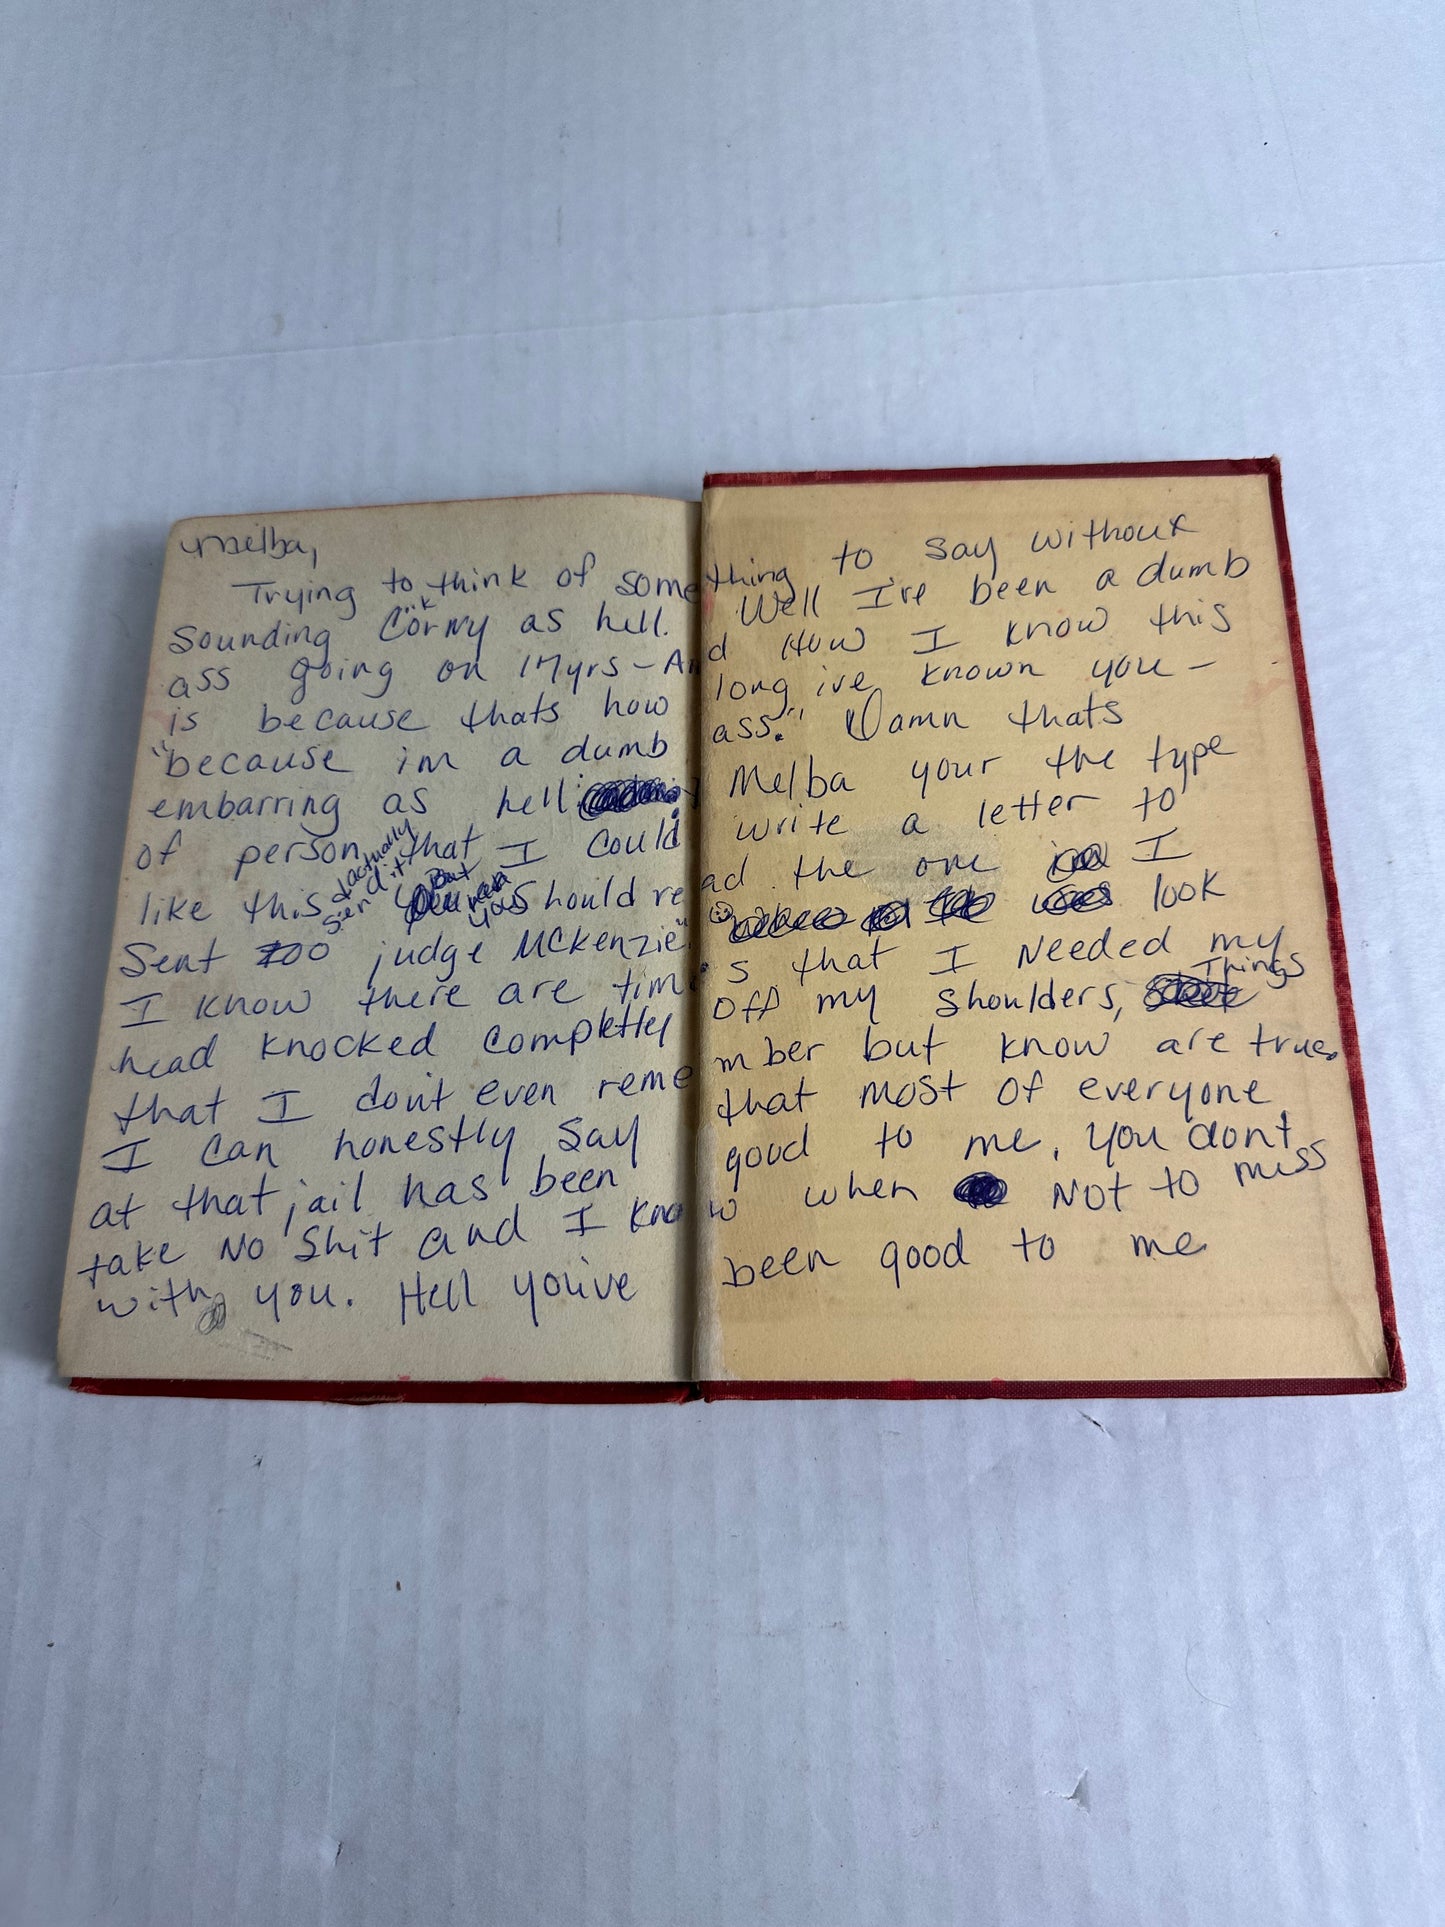 Melba,
Trying to think of something to say without
sounding Corny as hell. Well I've been a dumb
ass going on 17yrs - And How I know this
is because thats how long ive known you -
"because im a dumb ass." Damn thats
embarring as hell Melba your the type
of person that I could write a letter to
like this & actually send it But you should read the one I
Sent to judge McKenzie" look
I know there are times that I Needed my
head knocked completly off my shoulders, Things
that I don't even remember but know are true.
I can honestly say that most of everyone
at that jail has been good to me. You dont
take No Shit and I know when Not to miss
with you. Hell you've been good to me